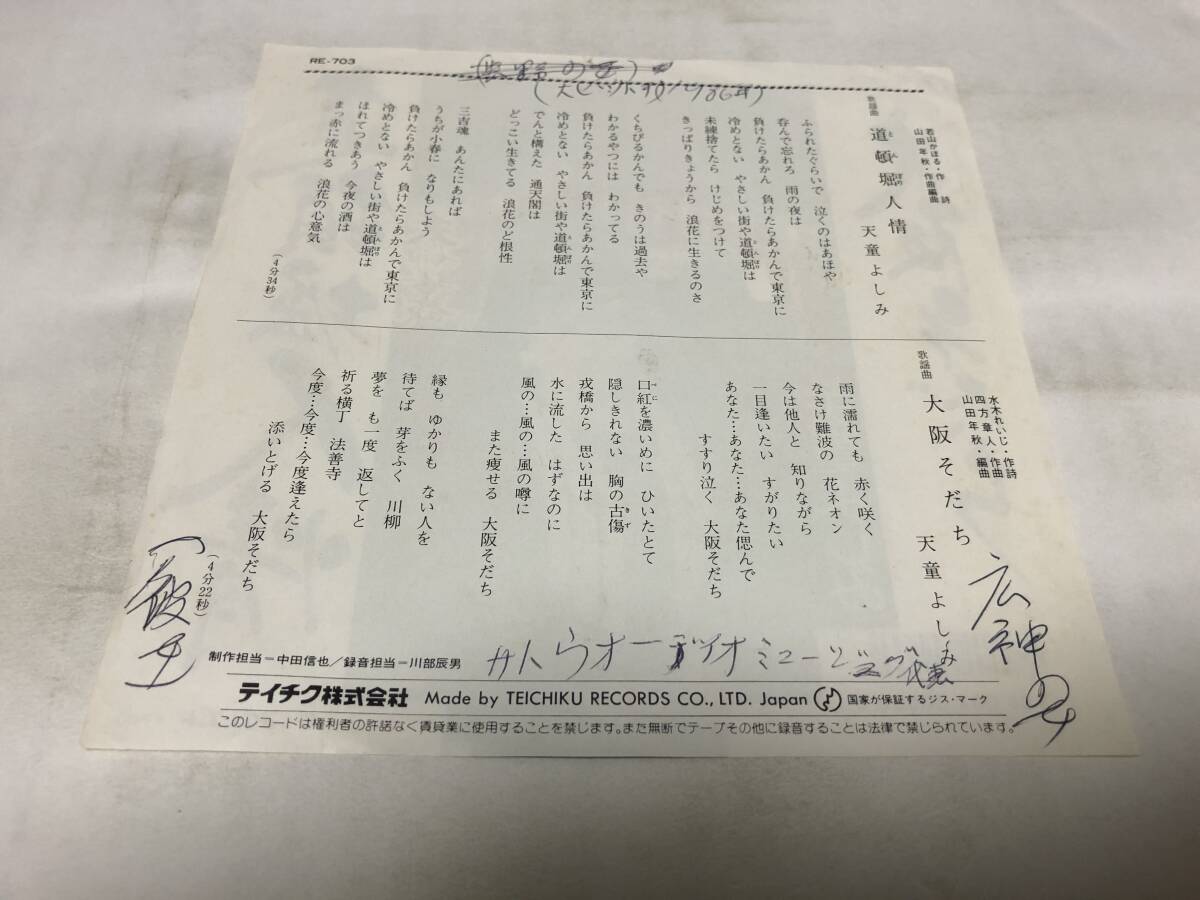 RE-703
歌謡曲
道頓堀人情
天童よしみ
若山かほる・作詩
山田年秋・作曲編曲
ふられたぐらいで 泣くのはあほや
呑んで忘れろ 雨の夜は
負けたらあかん 負けたらあかんで東京に
冷めとない やさしい街や道頓堀は
未練捨てたら けじめをつけて
きっぱりきょうから 浪花に生きるのさ
くちびるかんでも きのうは過去や
わかるやつには わかってる
負けたらあかん 負けたらあかんで東京に
冷めとない やさしい街や道頓堀は
でんと構えた 通天閣は
どっこい生きてる 浪花のど根性
三吉魂 あんたにあれば
うちが小春に なりもしよう
負けたらあかん 負けたらあかんで東京に
冷めとない やさしい街や道頓堀は
ほれてつきあう 今夜の酒は
まっ赤に流れる 浪花の心意気
(4分34秒)
歌謡曲
大阪そだち
天童よしみ
水木れいじ・作詩
四方章人・作曲
山田年秋・編曲
雨に濡れても 赤く咲く
なさけ難波の 花ネオン
今は他人と 知りながら
一目逢いたい すがりたい
あなた…あなた…あなた偲んで
すすり泣く 大阪そだち
口紅を濃いめに ひいたとて
隠しきれない 胸の古傷
戎橋から 思い出は
水に流した はずなのに
風の…風の…風の噂に
また痩せる 大阪そだち
縁も ゆかりも ない人を
待てば 芽をふく 川柳
夢を も一度 返してと
祈る横丁 法善寺
今度…今度…今度逢えたら
添いとげる 大阪そだち
(4分22秒)
広神の
サトウオーディオミュージック代表
制作担当=中田信也/録音担当=川部辰男
テイチク株式会社 Made by TEICHIKU RECORDS CO., LTD. Japan 国家が保証するジス・マーク
このレコードは権利者の許諾なく賃貸業に使用することを禁じます。また無断でテープその他に録音することは法律で禁じられています。